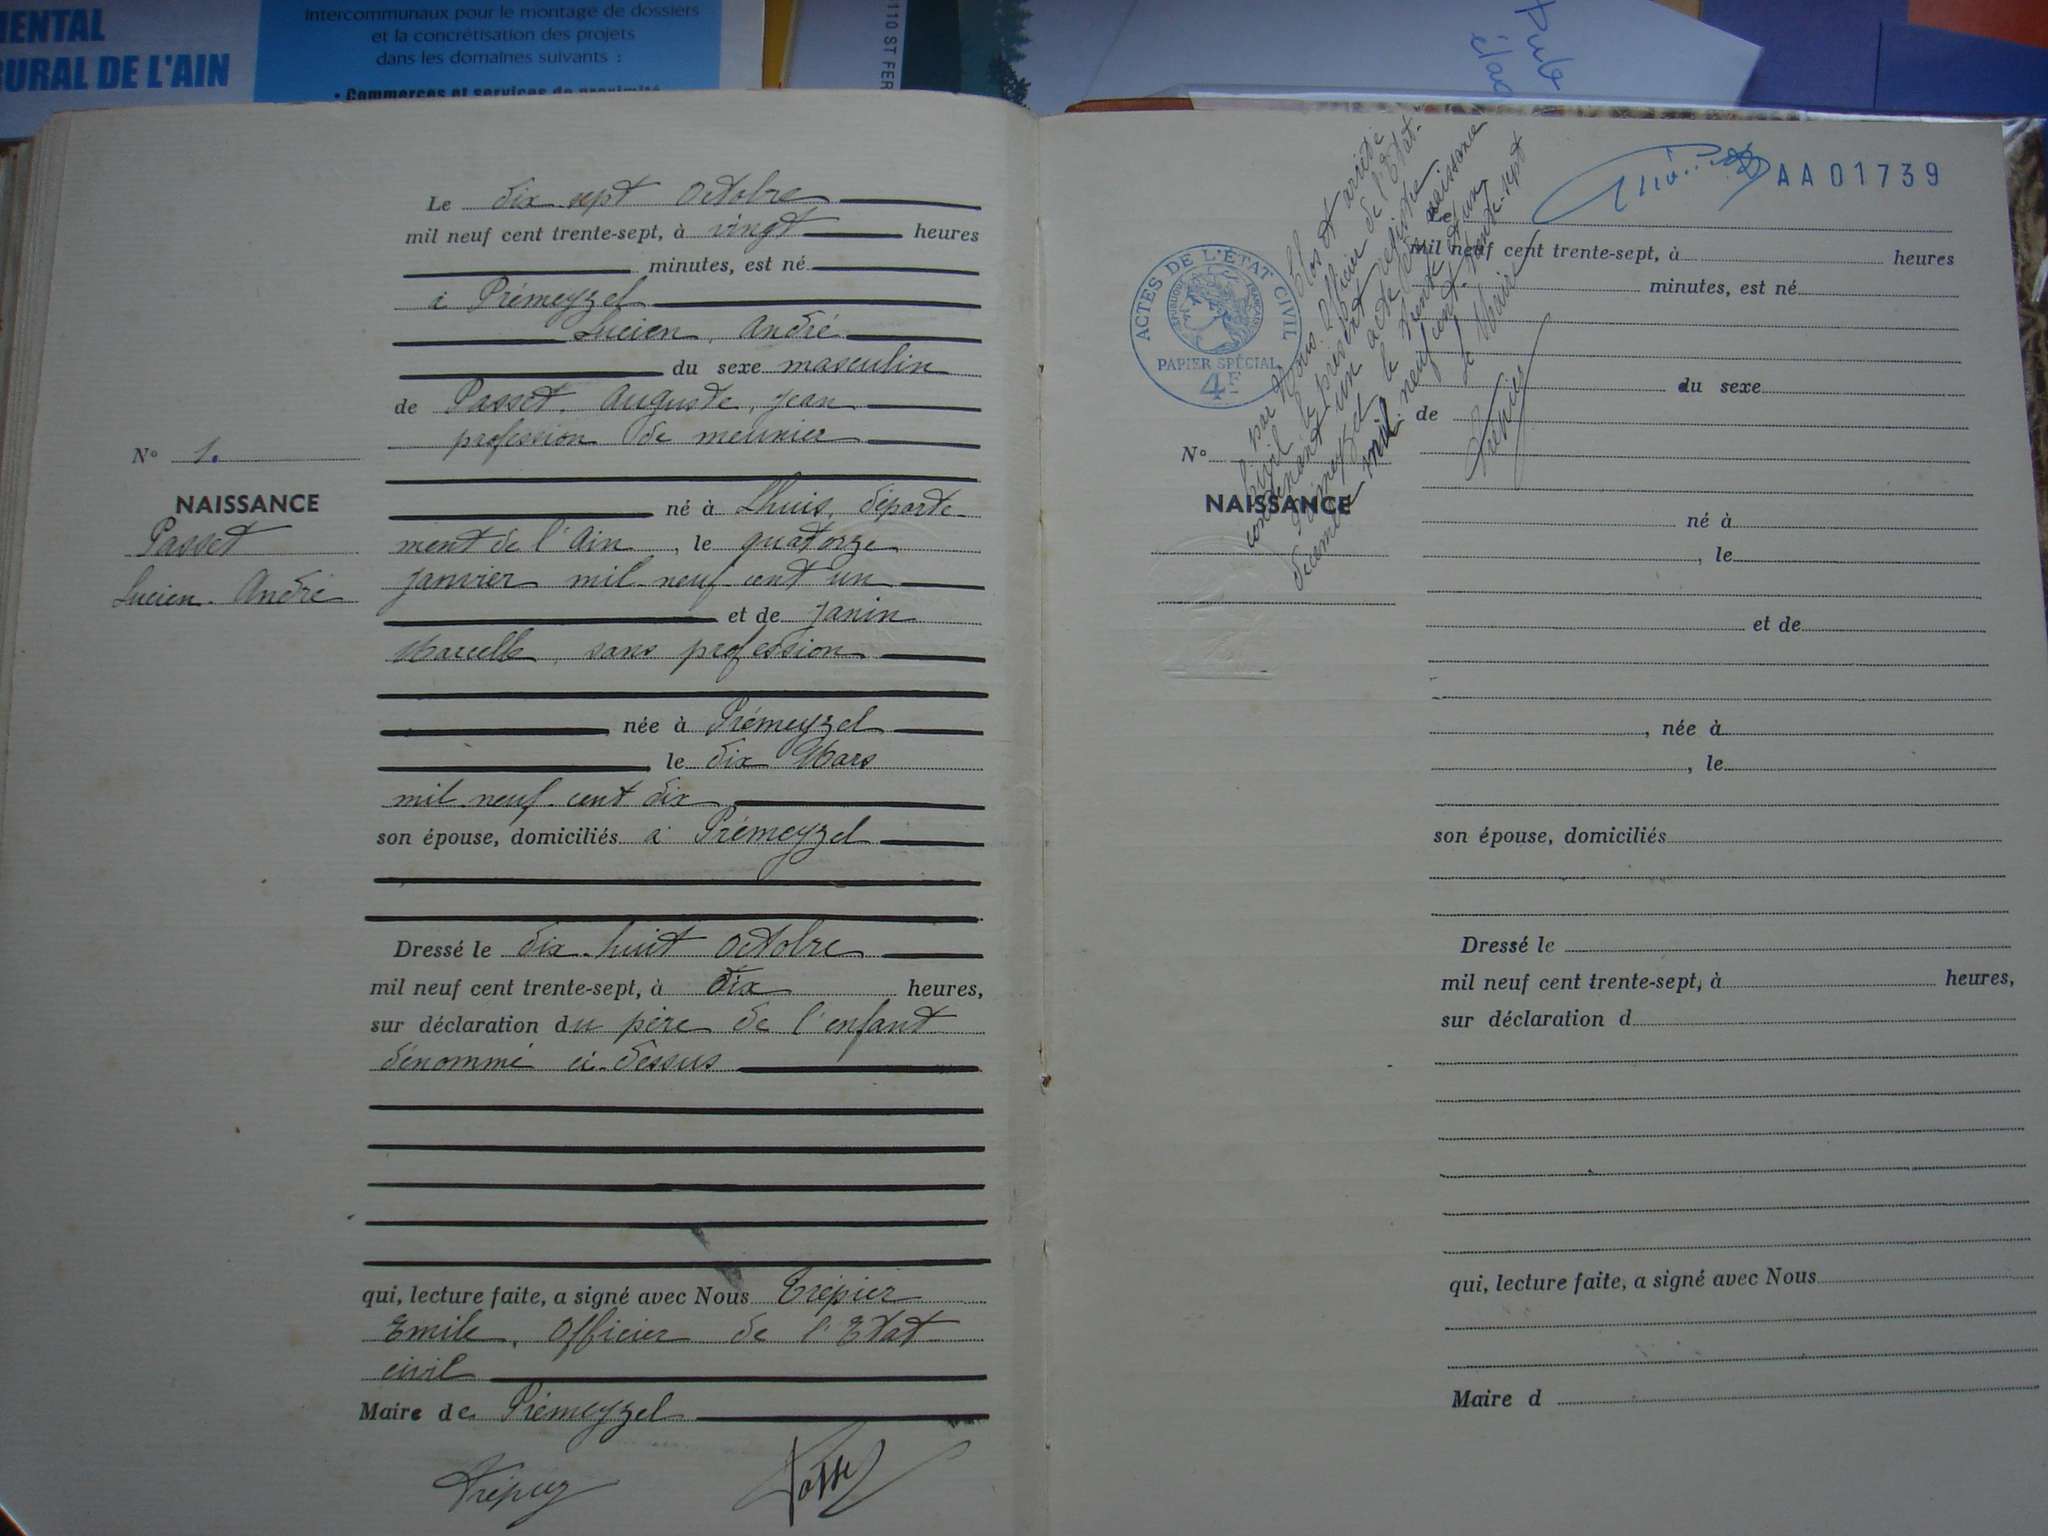 MENTAL
RURAL DE L'AIN
Intercommunaux pour le montage de dossiers
et la concrétisation des projets
dans les domaines suivants :
• Commerces et services de proximité
110 ST FER
Le dix sept Octobre
mil neuf cent trente-sept, à vingt heures
minutes, est né
à Prémeyzel
Lucien, André
du sexe masculin
de Passet, Auguste, Jean
profession de meunier
N° 1.
NAISSANCE
Passet
Lucien. André
né à Lhuis, départe-
ment de l'Ain, le quatorze
janvier mil neuf cent un
et de Janin
Marcelle, sans profession
née à Prémeyzel
le dix Mars
mil neuf cent dix
son épouse, domiciliés à Prémeyzel
Dressé le dix-huit Octobre
mil neuf cent trente-sept, à dix heures,
sur déclaration du père de l'enfant
dénommé ci-dessus
qui, lecture faite, a signé avec Nous Trépier
Emile, Officier de l'Etat
civil
Maire de Prémeyzel
Trépier
Passet
AA01739
ACTES DE L'ÉTAT CIVIL
RÉPUBLIQUE FRANÇAISE
PAPIER SPÉCIAL
4F
Clos et arrêté
par Nous Officier de l'Etat-
Civil le présent registre
contenant un acte de naissance
Prémeyzel le trente et un
décembre mil neuf cent trente-sept
Le Maire
Trépier
Le
mil neuf cent trente-sept, à heures
minutes, est né
du sexe
de
N°
NAISSANCE
né à
, le
et de
, née à
, le
son épouse, domiciliés
Dressé le
mil neuf cent trente-sept, à heures,
sur déclaration d
qui, lecture faite, a signé avec Nous
Maire d